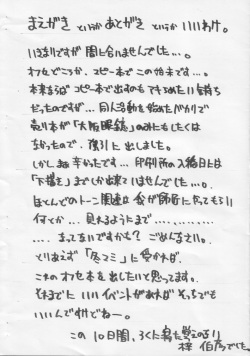 まえがき というか あとがき というか いいわけ。
いきなりですが 間に合いませんでした…。
オフセどころか、コピー本で この始末です…。
本来ならば コピー本で出すのも あきらめたい気持ち
だったのですが… 同人活動を始めたばかりで
売り本が「大阪眼鏡」のみにもしたくは
なかったので、強引に出しました。
しかし 極辛かった…印刷所の入稿日には
「下描き」までしか出来ていませんでした…。
ほとんどのトーン関連は 食が師匠に貼ってもらい
何とか… 見れるようにまで…………
…… まってないですかも？ ごめんなさい。
とりあえず「冬コミ」に受かれば、
これの オフセ本を出したいと思ってます。
それまでに いいイベントがあれば そっちでも
いいんですけどねー。
この10日間、ろくに寝た覚えのない
梓 伯彦でした。